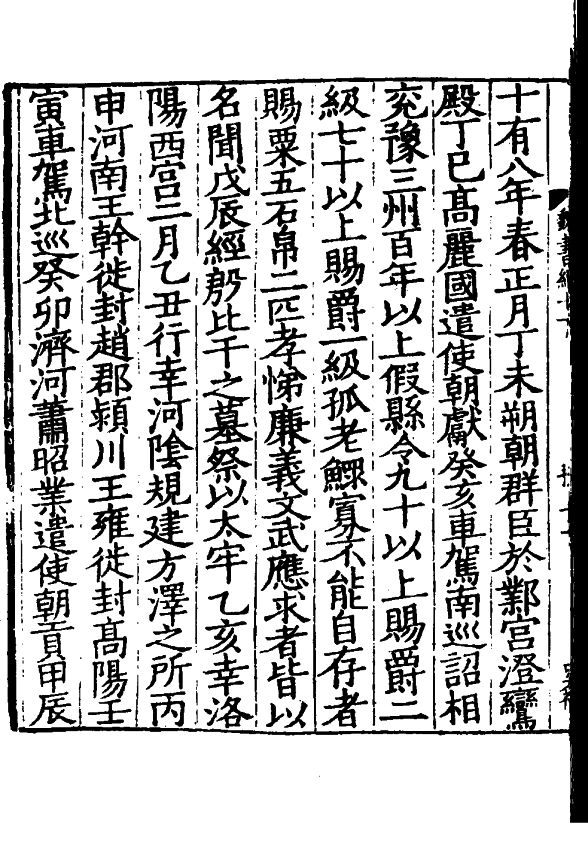 魏書紀
十有八年春正月丁未朔朝群臣於鄴宮澄鸞
殿丁巳髙麗國遣使朝獻癸亥車駕南巡詔相
兖豫三州百年以上假縣令九十以上賜爵二
級七十以上賜爵一級孤老鰥寡不能自存者
賜粟五石帛二匹孝悌廉義文武應求者皆以
名聞戊辰經殷比干之墓祭以太牢乙亥幸洛
陽西宮二月乙丑行幸河陰規建方澤之所丙
申河南王幹徙封趙郡潁川王雍徙封髙陽壬
寅車駕北巡癸卯濟河蕭昭業遣使朝貢甲辰